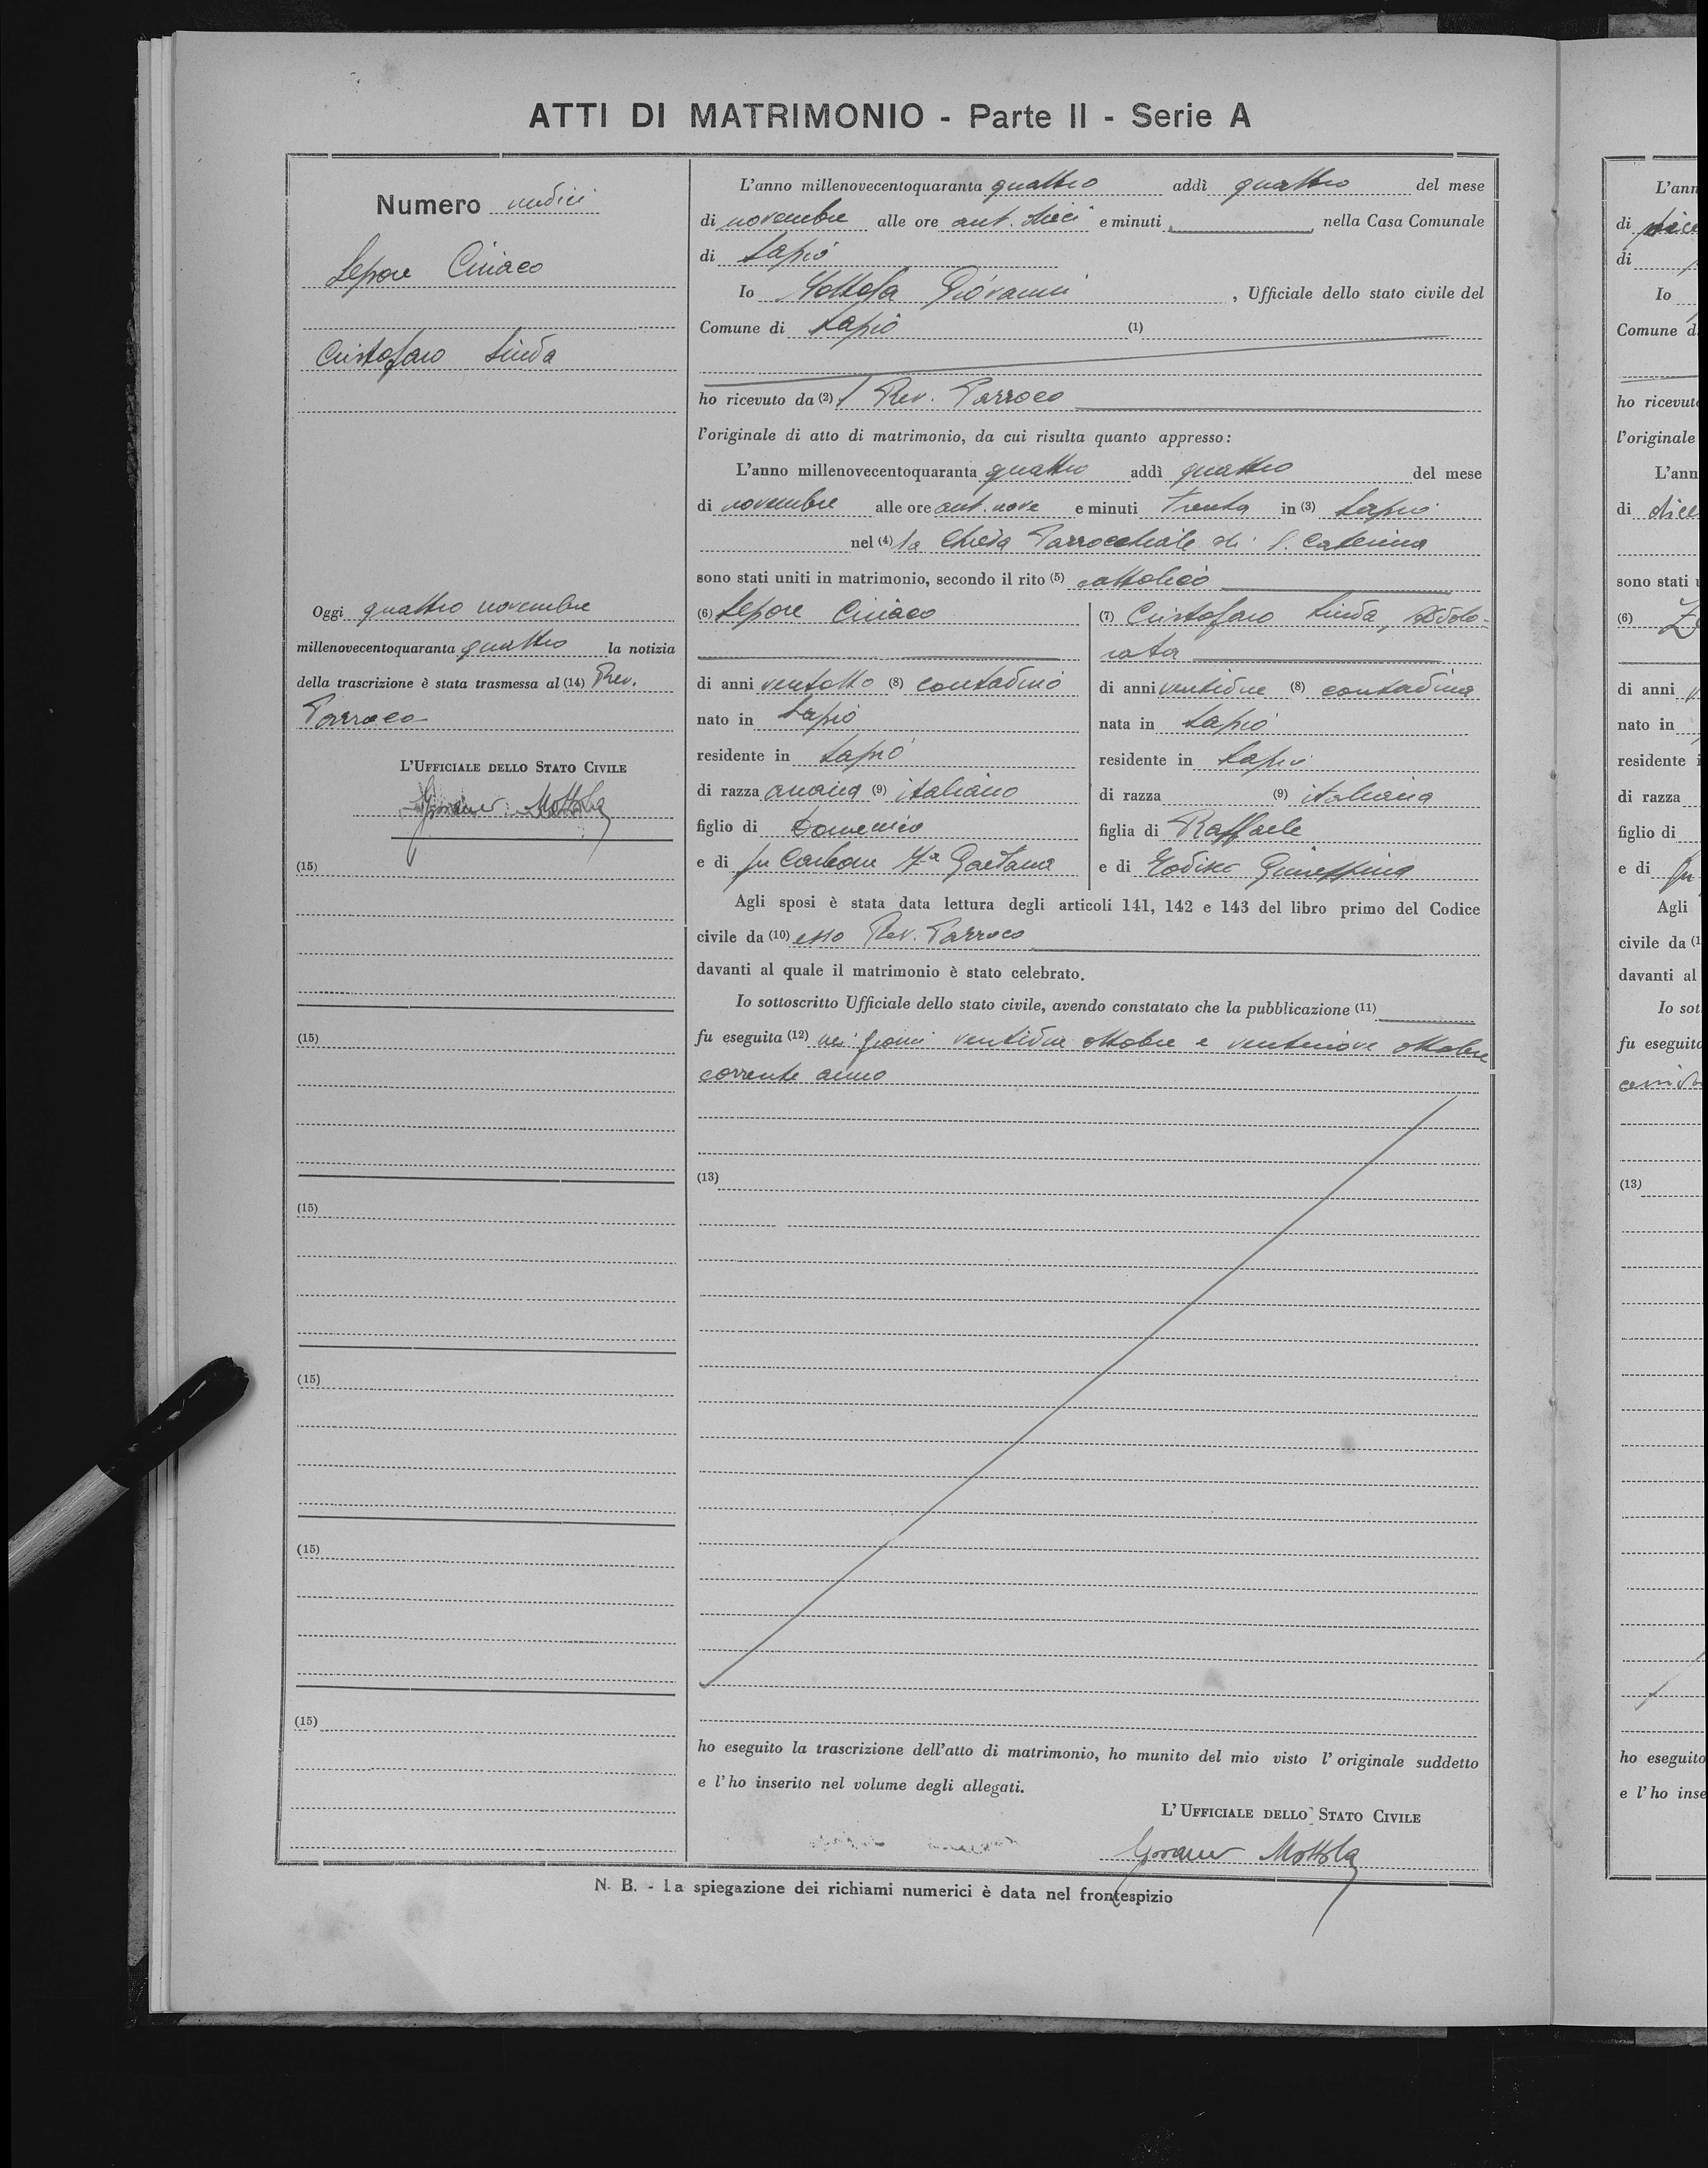 ATTI DI MATRIMONIO - Parte II - Serie A
Numero undici
Lepore Ciriaco
Cristofaro Linda
Oggi quattro novembre
millenovecentoquaranta quattro la notizia
della trascrizione è stata trasmessa al (14) Rev.
Parroco
L'UFFICIALE DELLO STATO CIVILE
Giovanni Mottola
(15)
(15)
(15)
(15)
(15)
(15)
L'anno millenovecentoquaranta quattro addì quattro del mese
di novembre alle ore ant. dieci e minuti nella Casa Comunale
di Lapio
Io Mottola Giovanni, Ufficiale dello stato civile del
Comune di Lapio (1)
ho ricevuto da (2) l Rev. Parroco
l'originale di atto di matrimonio, da cui risulta quanto appresso:
L'anno millenovecentoquaranta quattro addì quattro del mese
di novembre alle ore ant. nove e minuti trenta in (3) Lapio
nel (4) la Chiesa Parrocchiale di S. Caterina
sono stati uniti in matrimonio, secondo il rito (5) cattolico
(6) Lepore Ciriaco
di anni ventotto (8) contadino
nato in Lapio
residente in Lapio
di razza ariana (9) italiano
figlio di Domenico
e di fu Carbone Ma Gaetana
(7) Cristofaro Linda, Addolo-
rata
di anni ventidue (8) contadina
nata in Lapio
residente in Lapio
di razza (9) italiana
figlia di Raffaele
e di Giuseppina
Agli sposi è stata data lettura degli articoli 141, 142 e 143 del libro primo del Codice
civile da (10) esso Rev. Parroco
davanti al quale il matrimonio è stato celebrato.
Io sottoscritto Ufficiale dello stato civile, avendo constatato che la pubblicazione (11)
fu eseguita (12) nei giorni ventidue ottobre e ventinove ottobre
corrente anno
(13)
ho eseguito la trascrizione dell'atto di matrimonio, ho munito del mio visto l'originale suddetto
e l'ho inserito nel volume degli allegati.
L'UFFICIALE DELLO STATO CIVILE
Giovanni Mottola
N. B. - La spiegazione dei richiami numerici è data nel frontespizio
L'ann
di dice
di
Io
Comune d
ho ricevut
l'originale
L'ann
di dice
sono stati
(6)
di anni
nato in
residente
di razza
figlio di
e di fu
Agli
civile da (1
davanti al
Io sot
fu eseguita
(13)
ho eseguito
e l'ho inse